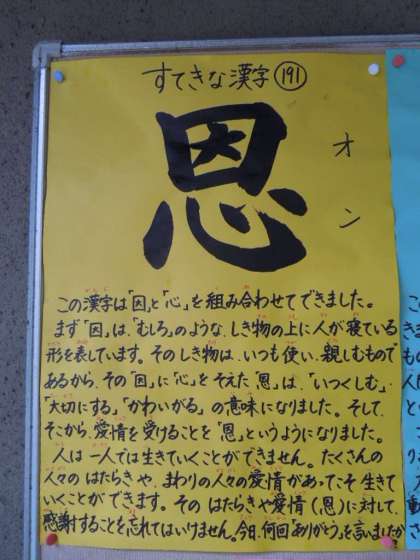 すてきな漢字 191
恩
オン
この漢字は「因」と「心」を組み合わせてできました。
まず「因」は、「むしろ」のような、しき物の上に人が寝ている
形を表しています。そのしき物は、いつも使い、親しむもので
あるから、その「因」に「心」をそえた「恩」は、「いつくしむ」
「大切にする」「かわいがる」の意味になりました。そして、
そこから、愛情を受けることを「恩」というようになりました。
人は一人では生きていくことができません。たくさんの
人々のはたらきや、まわりの人々の愛情があってこそ生き
ていくことができます。そのはたらきや愛情(恩)に対して、
感謝することを忘れてはいけません。今日、何回「ありがとう」を言いましたか